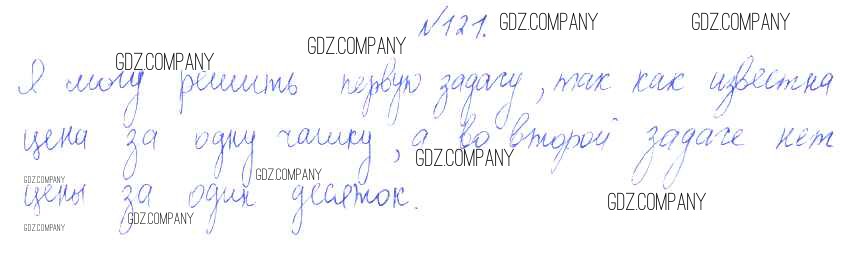 №121.
GDZ.COMPANY GDZ.COMPANY
GDZ.COMPANY GDZ.COMPANY
Я могу решить первую задачу, так как известна
цена за одну чашку, а во второй задаче нет
GDZ.COMPANY
GDZ.COMPANY GDZ.COMPANY
цены за один десяток.
GDZ.COMPANY
GDZ.COMPANY GDZ.COMPANY